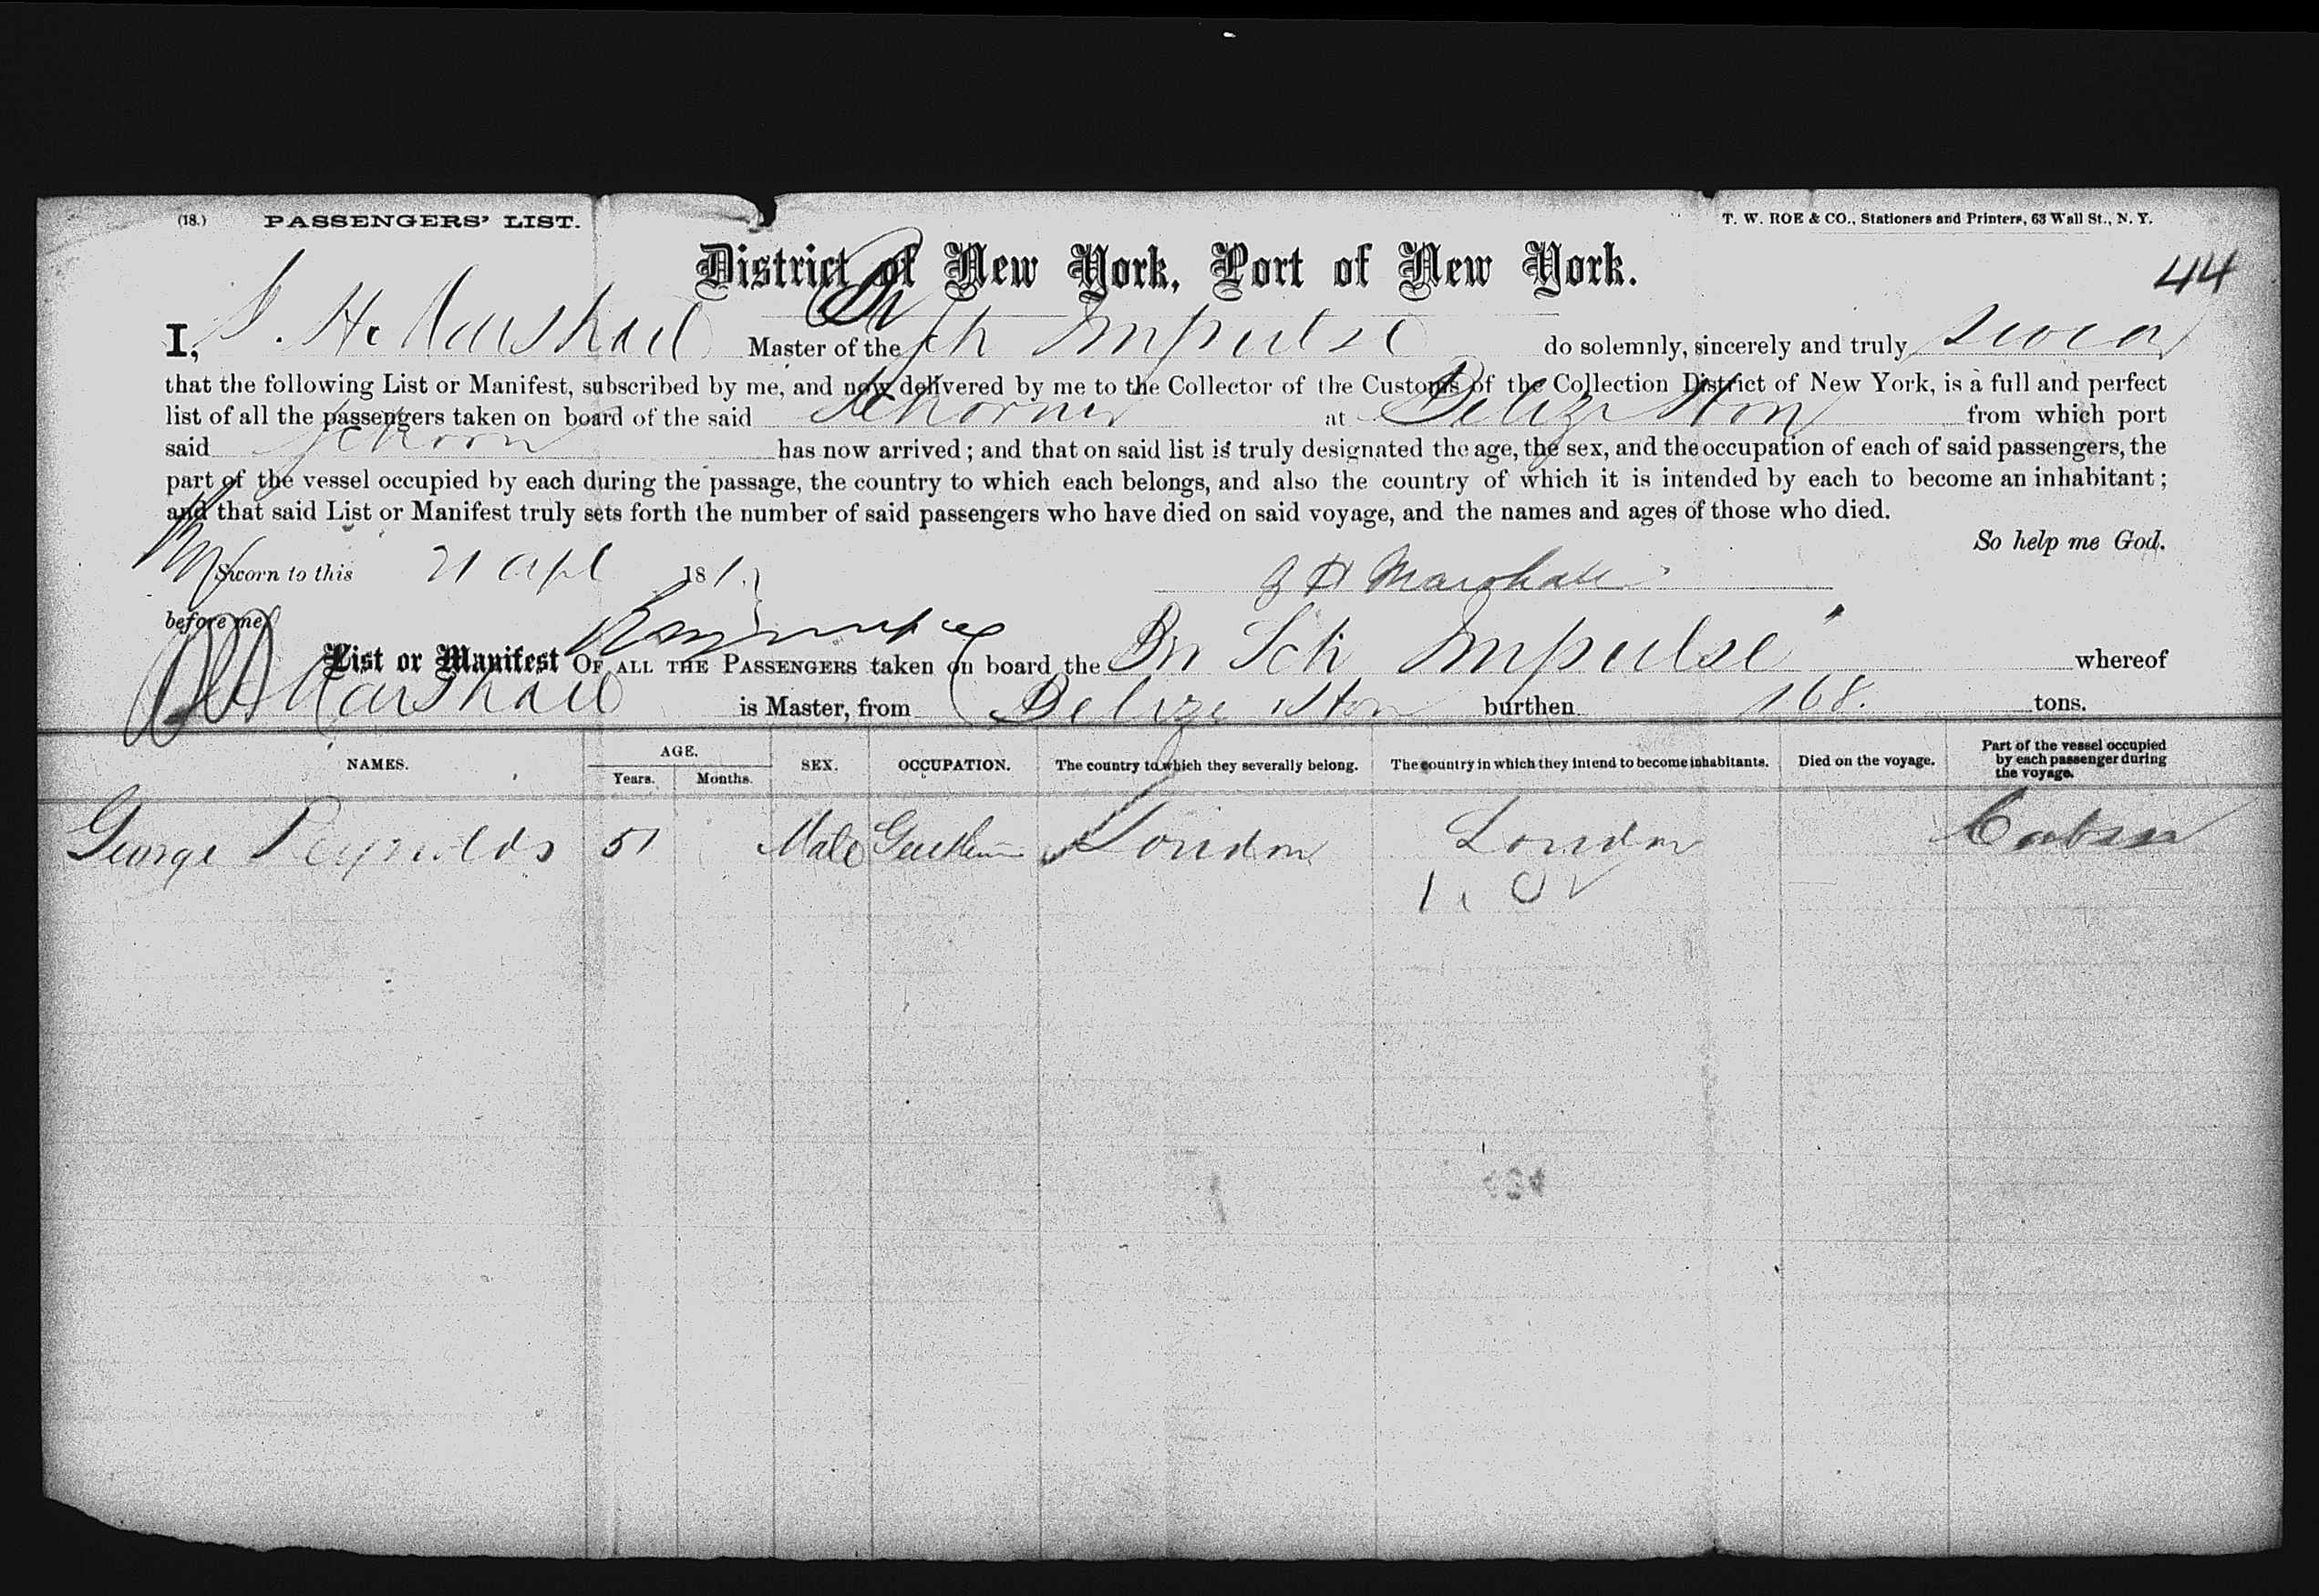 (18.) PASSENGERS' LIST. T. W. ROE & CO., Stationers and Printers, 63 Wall St., N. Y.
District of New York, Port of New York. 44
I, S. H. Marshall Master of the Br Sch Impulse do solemnly, sincerely and truly swear
that the following List or Manifest, subscribed by me, and now delivered by me to the Collector of the Customs of the Collection District of New York, is a full and perfect
list of all the passengers taken on board of the said Schooner at Belize Hon from which port
said Schoon has now arrived; and that on said list is truly designated the age, the sex, and the occupation of each of said passengers, the
part of the vessel occupied by each during the passage, the country to which each belongs, and also the country of which it is intended by each to become an inhabitant;
and that said List or Manifest truly sets forth the number of said passengers who have died on said voyage, and the names and ages of those who died.
So help me God.
Sworn to this 21 Apl 18 S H Marshall
before me
List or Manifest OF ALL THE PASSENGERS taken on board the Br Sch Impulse whereof
Marshall is Master, from Belize Hon burthen 168. tons.
NAMES. AGE. Years. Months. SEX. OCCUPATION. The country to which they severally belong. The country in which they intend to become inhabitants. Died on the voyage. Part of the vessel occupied by each passenger during the voyage.
George Reynolds 51 Male London London Cabin